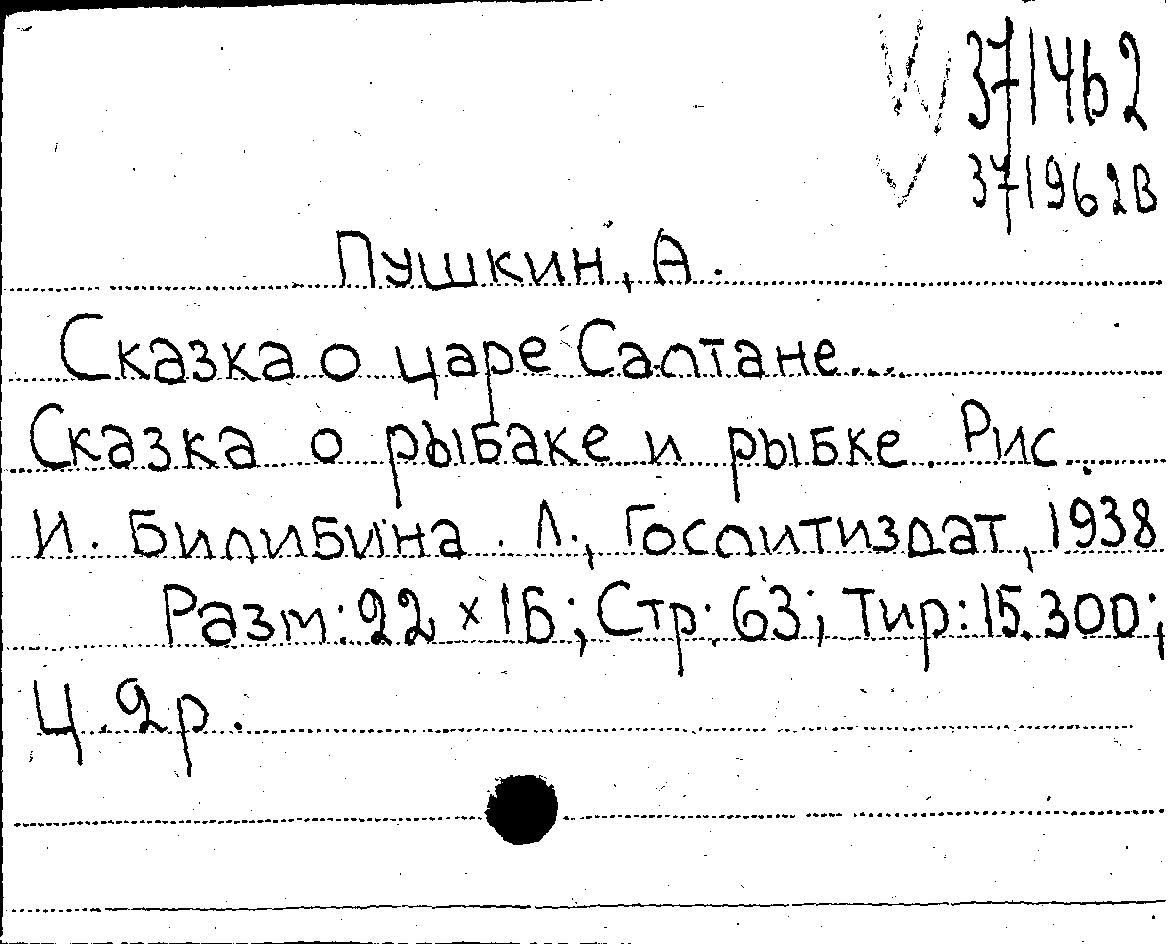 371462
371962В
Пушкин, А.
Сказка о царе Салтане...
Сказка о рыбаке и рыбке. Рис.
И. Билибина. Л., Гослитиздат, 1938
Разм: 22 х 15; Стр: 63; Тир: 15.300;
Ц. 2 р.